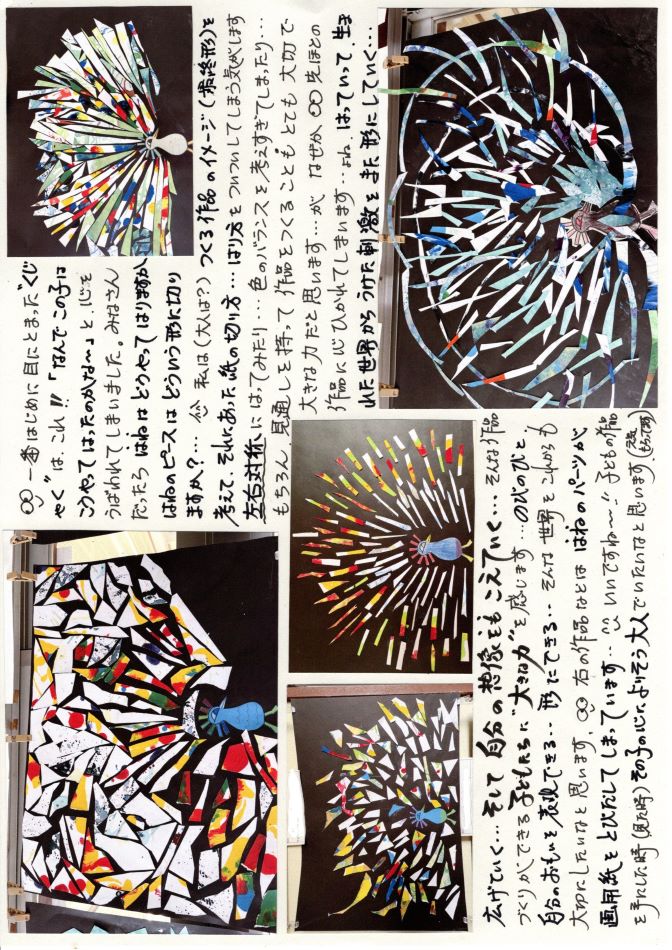 一番はじめに目にとまった"くじ
ゃく"は、これ!!「なんでこの子は
こうやってはったのかな〜」と、心を
うばわれてしまいました。みなさん
だったら はねは どうやって はりますか
はねのピースは どういう形に切り
ますか?… 私は(大人は?) つくる作品のイメージ(最終形)を
考えて、それにあった紙の切り方…はり方をついついしてしまう気がします
左右対称にはってみたり…色のバランスを考えすぎてしまったり…
もちろん 見通しを持って 作品をつくることも とても 大切で
大きな力だと思います…が なぜか 先ほどの
作品に心ひかれてしまいます… はっていって、生ま
れた世界からうけた刺激をまた形にしていく…
広げていく…そして自分の想像をもこえていく… そんな作品
づくりができる子どもたちに"大きな力"を感じます…のびのびと
自分のおもいを表現できる…形にできる…そんな世界をこれからも
大切にしたいなと思います。右の作品などは はねのパーツが、
画用紙をとびだしてしまっています…いいですね〜!! 子どもの作品
を手にした時(見た時)その子の心によりそう大人でいたいなと思います